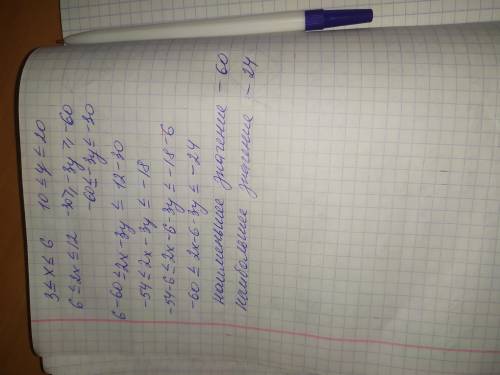 3 ≤ x ≤ 6 10 ≤ y ≤ 20
6 ≤ 2x ≤ 12 -30 ≥ -3y ≥ -60
-60 ≤ -3y ≤ -30
6-60 ≤ 2x-3y ≤ 12-30
-54 ≤ 2x-3y ≤ -18
-54-6 ≤ 2x-6-3y ≤ -18-6
-60 ≤ 2x-6-3y ≤ -24
наименьшее значение - 60
наибольшее значение - 24